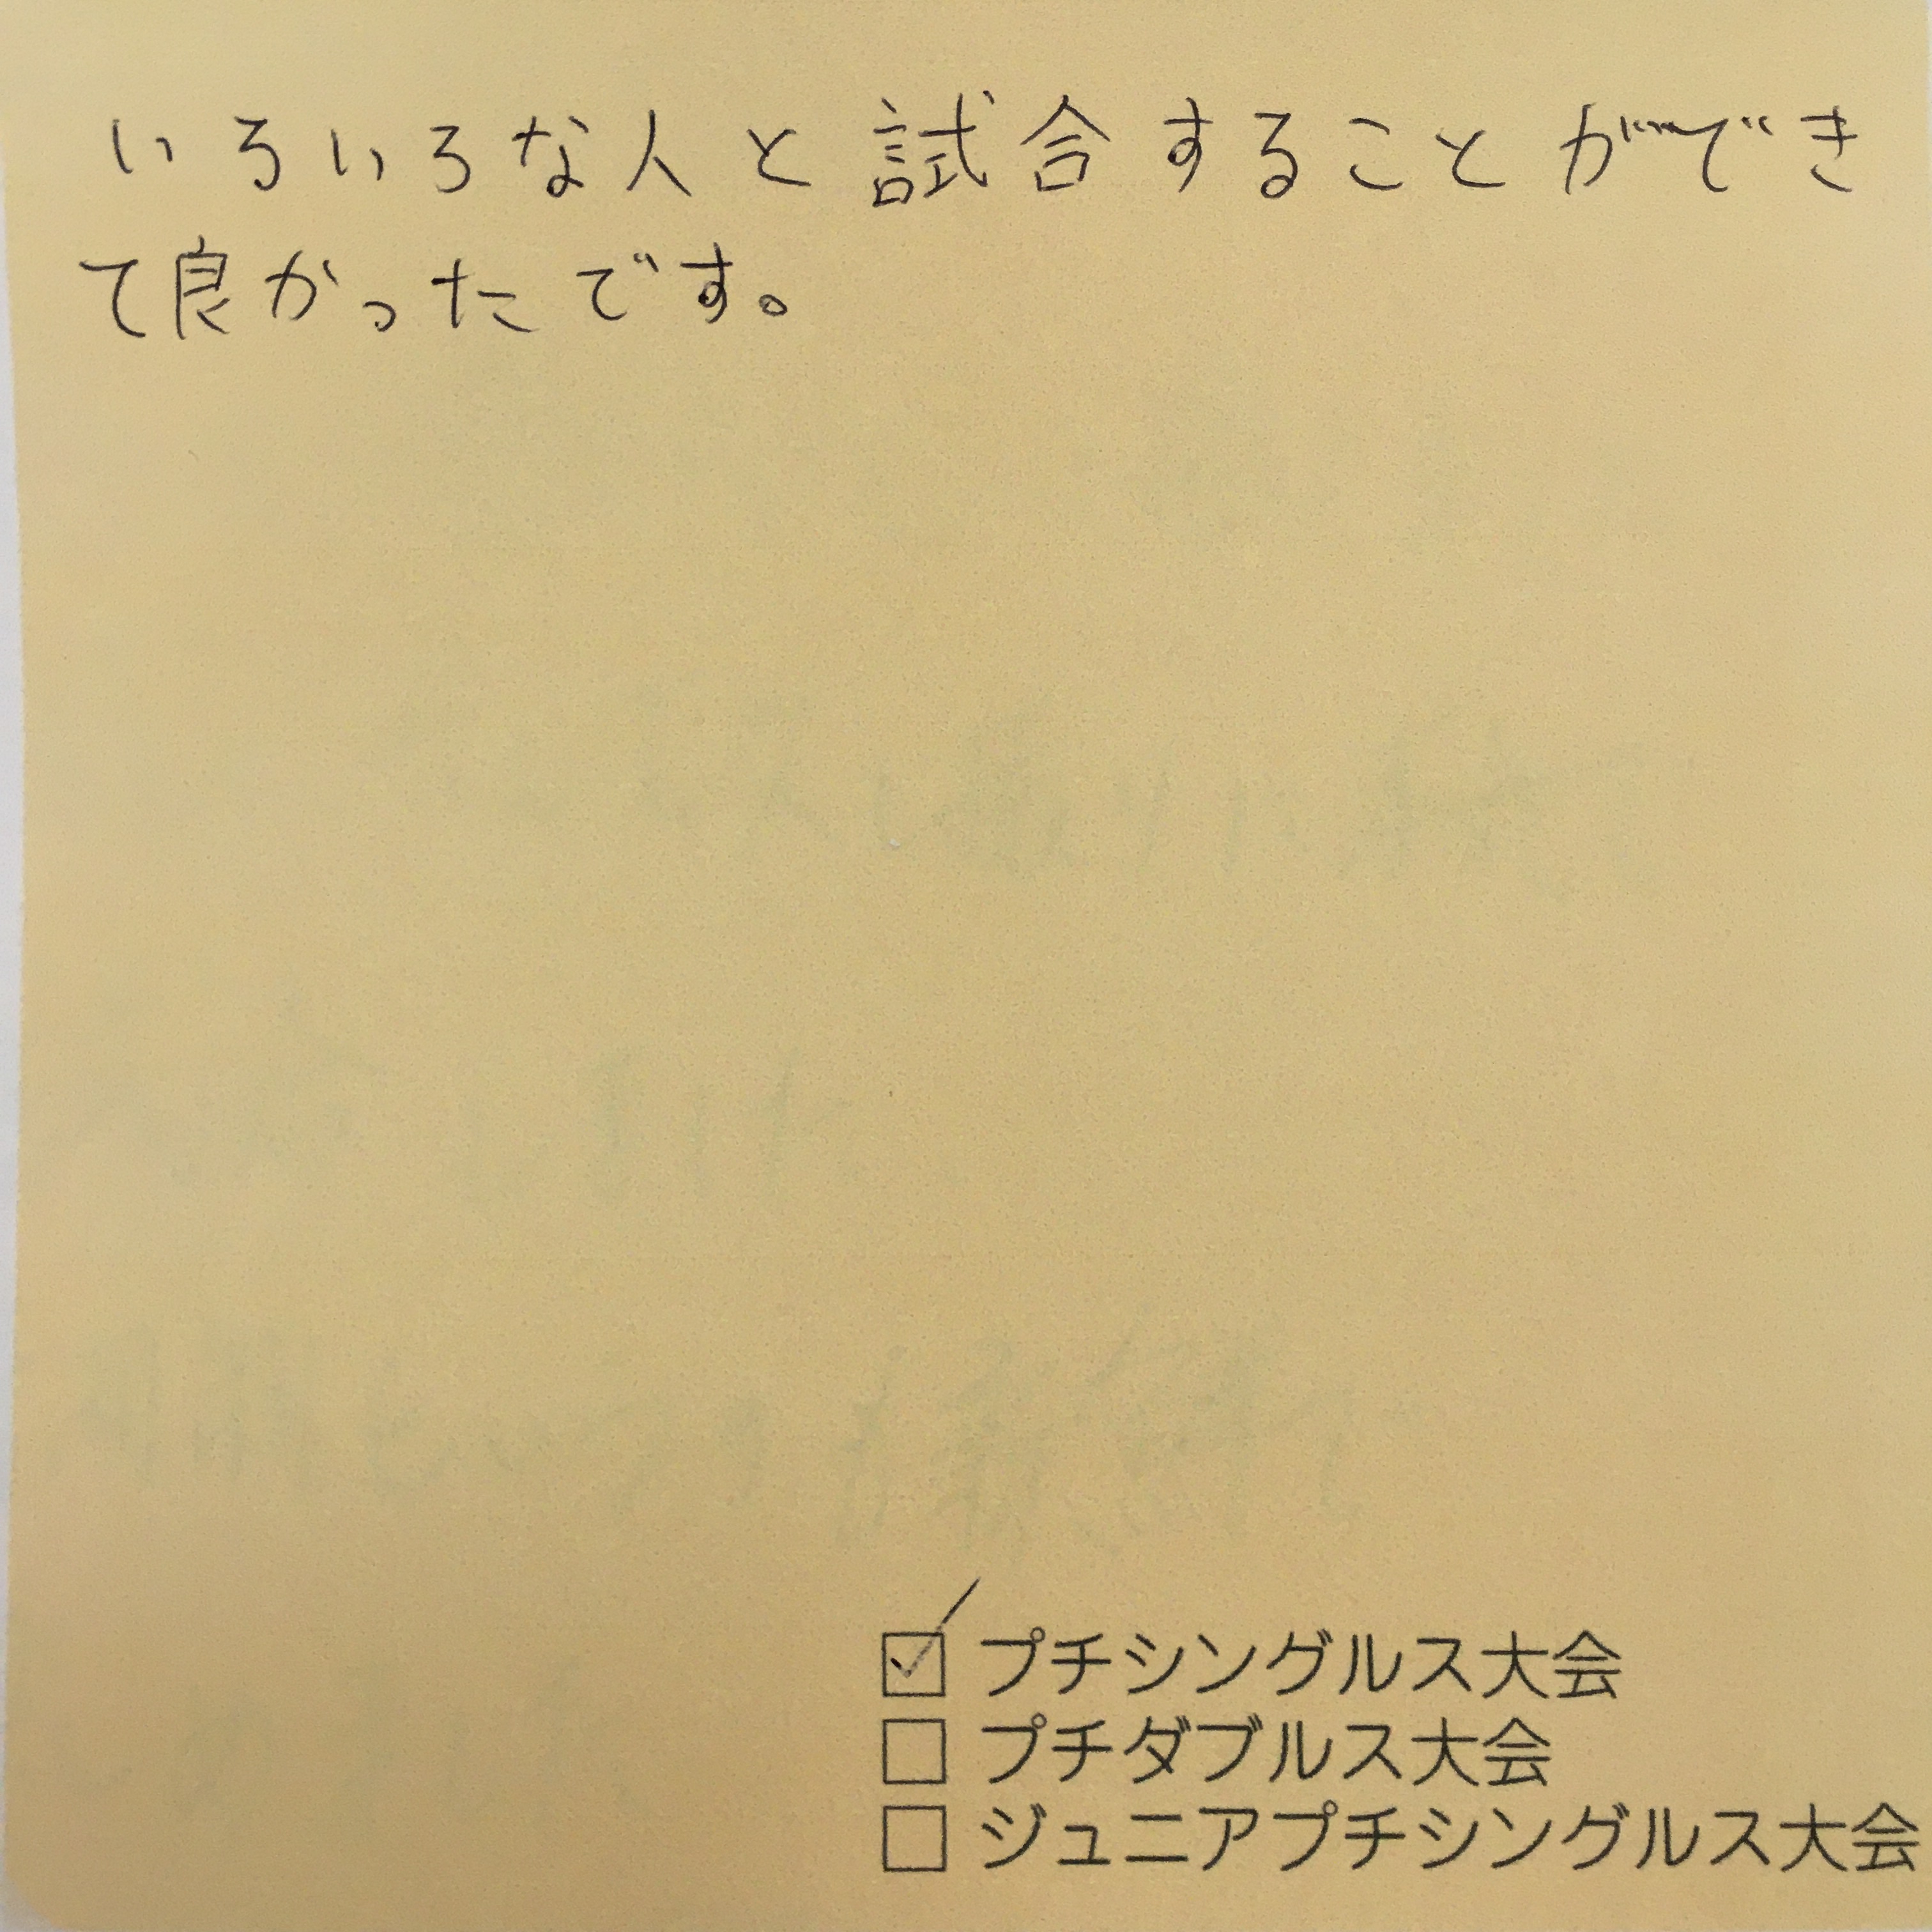 いろいろな人と試合することができ
て良かったです。
☑ プチシングルス大会
☐ プチダブルス大会
☐ ジュニアプチシングルス大会